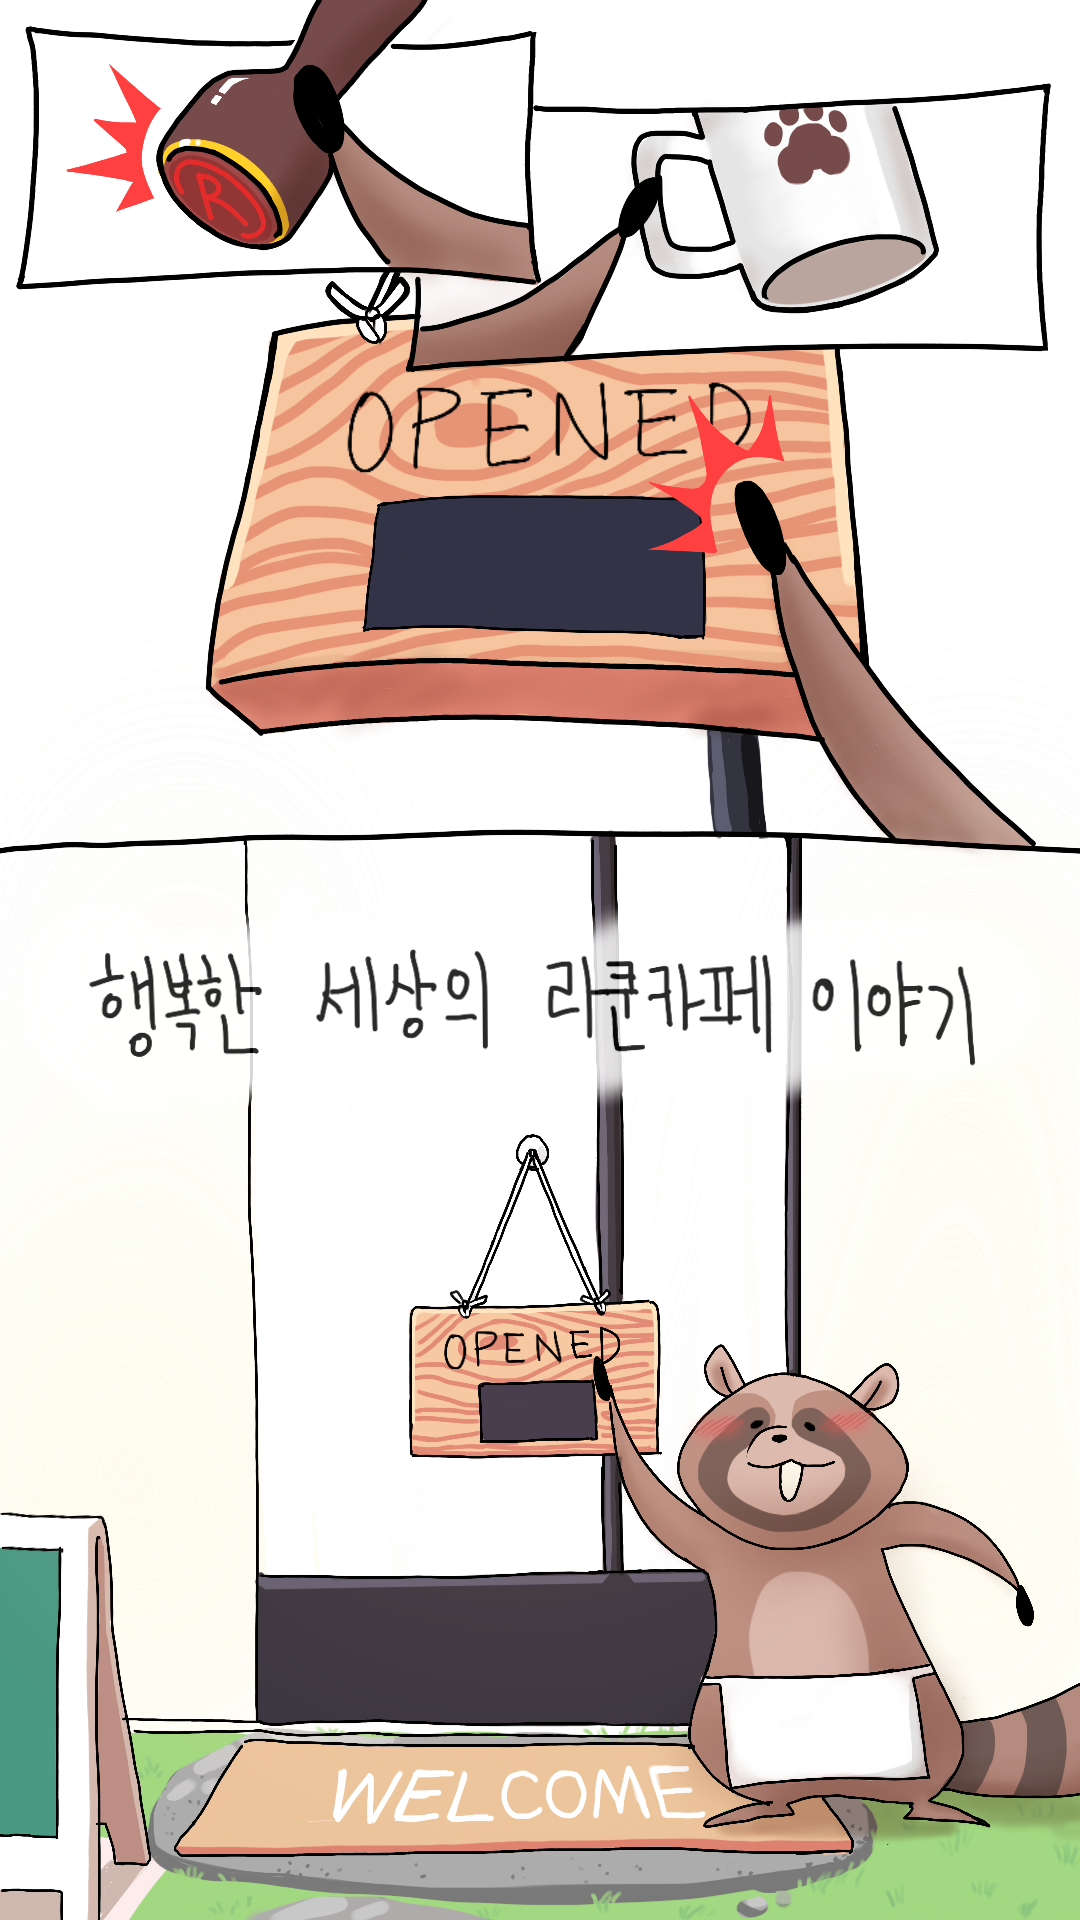 R
OPENED
행복한 세상의 라쿤카페 이야기
OPENED
WELCOME